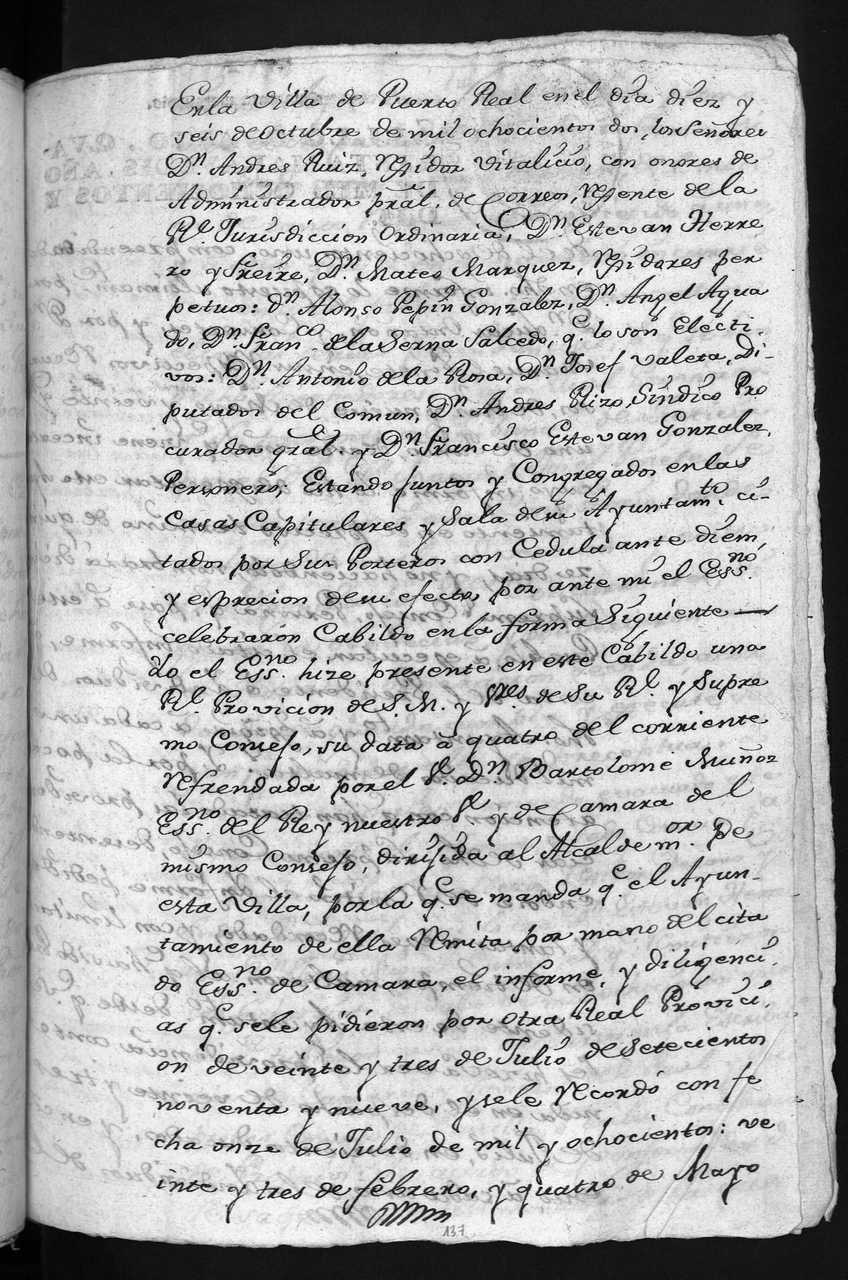 En la Villa de Puerto Real en el dia diez y
seis de Octubre de mil ochocientos dos, los Señores
Dn. Andres Ruiz, Rejidor Vitalicio, con onores de
Administrador pral. de Correos, Rejente de la
Rl. Jurisdiccion Ordinaria, Dn. Estevan Herre
ro y Freire, Dn. Mateo Marquez, Rejidores per
petuos: dn. Alonso Pepin Gonzalez, Dn. Angel Agua
do, Dn. Franco. de la Serna Salcedo, q. lo son Electi
vos: Dn. Antonio de la Rosa, Dn. Josef Valera, Di-
putados del Comun, Dn. Andres Rizo, Sindico Pro
curador gral. y Dn. Francisco Estevan Gonzalez,
Personero; Estando juntos y Congregados en las
Casas Capitulares y Sala de su Ayuntamto. ci-
tados por sus Porteros con Cedula ante diem,
y esprecion de su efecto, por ante mi el Essno.
celebrarón Cabildo en la forma Siguiente —
Yo el Essno. hize presente en este Cabildo una
Rl. Provicion de S. M. y Sres. de Su Rl. y Supre
mo Consejo, su data a quatro del corriente
Refrendada por el Sr. Dn. Bartolome Muñoz
Essno. del Rey nuestro Sr. y de Camara del
mismo Consejo, dirijida al Alcalde mor. de
esta Villa, por la q. se manda q. el Ayun-
tamiento de ella Remita por mano del cita
do Essno. de Camara, el informe, y diligenci
as q. se le pidieron por otra Real Provici
on de veinte y tres de Julio de Setecientos
noventa y nueve, y se le Recordó con fe
cha onze de Julio de mil y ochocientos: ve
inte y tres de febrero, y quatro de Mayo
137